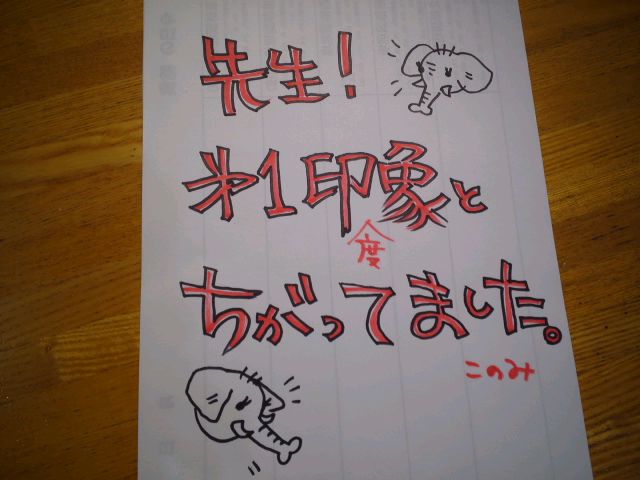 先生！
第1印象と
度
ちがってました。
このみ